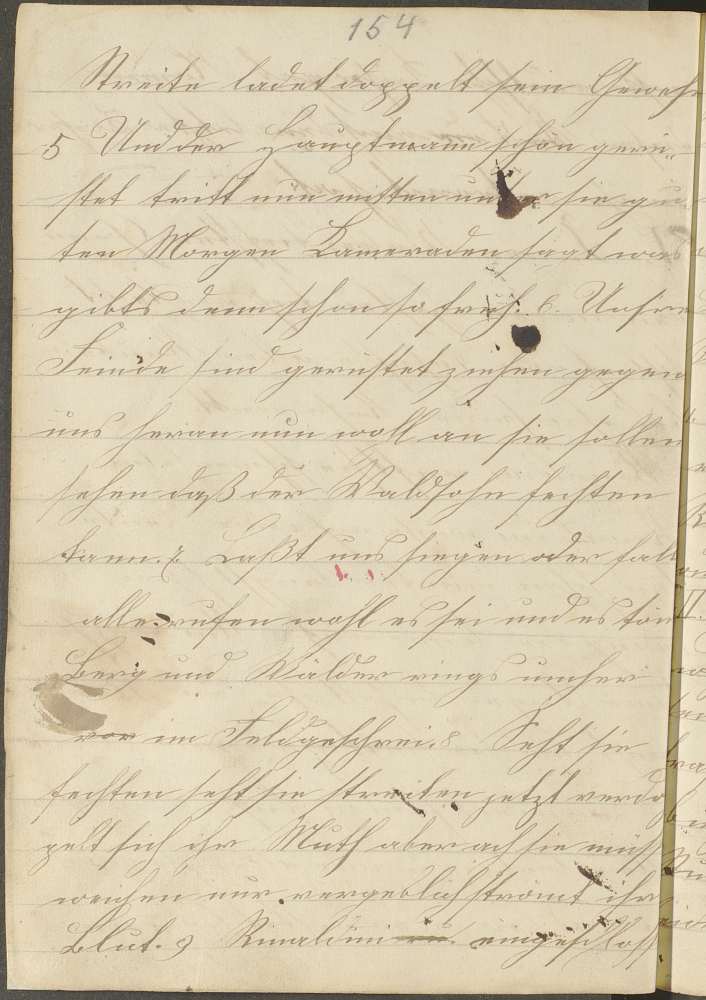 154
Streite ladet doppelt sein Gewehr
5 Und der Hauptmann schön gerü„
stet tritt nun mitten unter sie gu
ten Morgen Kameraden sagt was
gibts denn schon so früh. 6. Unsre
Feinde sind gerüstet ziehen gegen
uns heran nun woll an sie sollen
sehen daß der Waldsohn fechten
kann. 7. Laßt uns siegen oder fall
alle rufen wohl es sei und es tön
Berg und Wälder rings umher
vor im Feldgeschrei. 8 Seht sie
fechten seht sie streiten jetzt verdo
pelt sich ihr Muth aber ach sie müss
weichen nur vergeblich strömt ihr
Blut. 9 Rinaldini eingeschloss